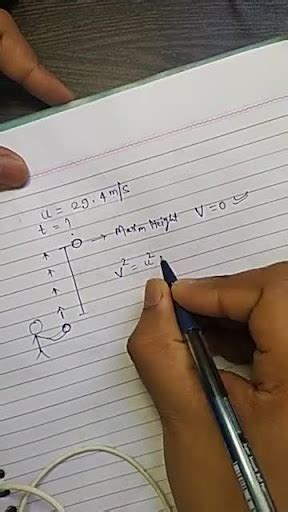 u = 29.4 m/s
t = ?
→ Maxm Height V = 0
v² = u²